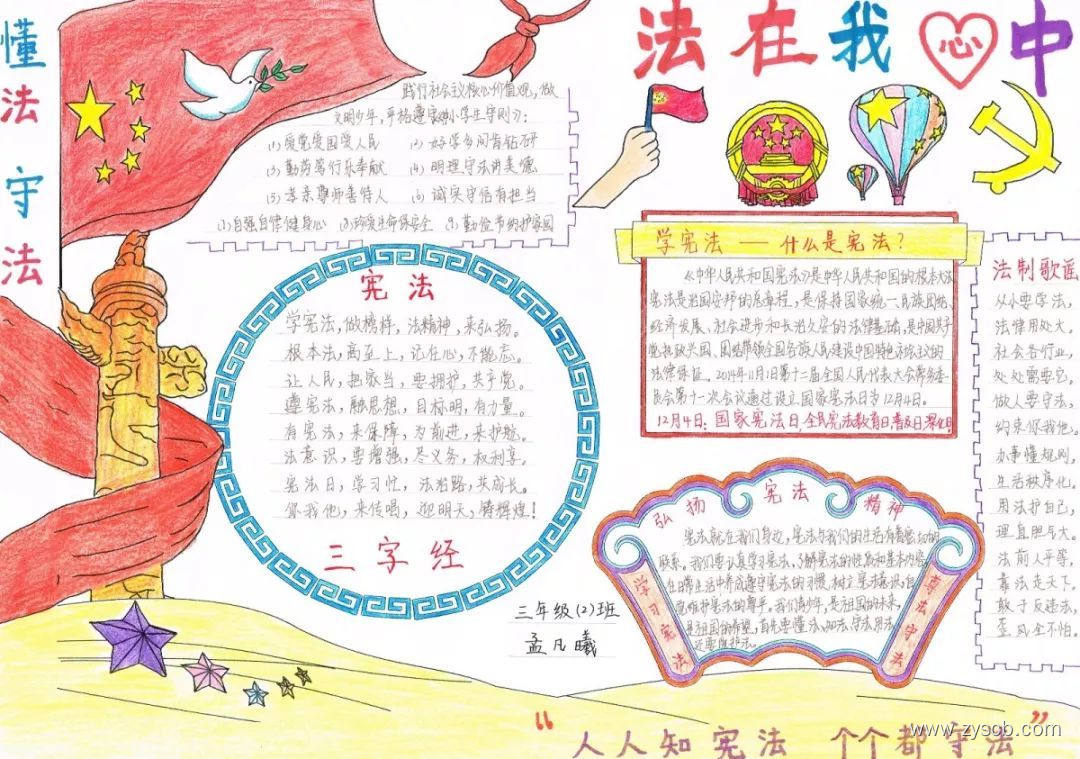 懂法 守法
法在我心中
践行社会主义核心价值观,做
文明少年,严格遵守《中小学生守则》:
(1) 爱党爱国爱人民 (2) 好学多问肯钻研
(3) 勤劳笃行乐奉献 (4) 明理守法讲美德
(5) 孝亲尊师善待人 (6) 诚实守信有担当
(7) 自强自律健身心 (8) 珍爱生命保安全 (9) 勤俭节约护家园
宪法
学宪法,做榜样,法精神,来弘扬。
根本法,高至上,记在心,不能忘。
让人民,把家当,要拥护,共产党。
遵宪法,融思想,目标明,有力量。
有宪法,来保障,为前进,来护航。
法意识,要增强,尽义务,权利享。
宪法日,学习忙,法治路,共成长。
你我他,来传唱,迎明天,铸辉煌!
三字经
三年级(2)班
孟凡曦
学宪法 — 什么是宪法?
《中华人民共和国宪法》是中华人民共和国的根本大法
宪法是治国安邦的总章程,是保持国家统一、民族团结、
经济发展、社会进步和长治久安的法律基础,是中国共产
党执政兴国、团结带领全国各族人民建设中国特色社会主义的
法律保证。2014年11月1日第十二届全国人民代表大会常务委
员会第十一次会议通过设立国家宪法日为12月4日。
12月4日:国家宪法日,全民宪法教育日、普及日、深化日
法制歌谣
从小要学法,
法律用处大。
社会各行业,
处处需要它。
做人要守法,
约束你我他。
办事懂规则,
生活秩序佳。
用法护自己,
理直胆与大。
法前人平等,
靠法走天下。
敢于反违法,
歪风全不怕。
弘扬 宪法 精神
学习宪法
宪法就在我们身边,宪法与我们的生活有着密切的
联系。我们要认真学习宪法,了解宪法的性质和基本内容
在日常生活中养成遵守宪法的习惯,树立宪法意识,自
觉维护宪法的尊严。我们青少年,是祖国的未来,
是祖国的希望,首先要懂法、知法、守法、用法,
还要维护法。
遵法守法
“人人知宪法 个个都守法”
www.zysob.com